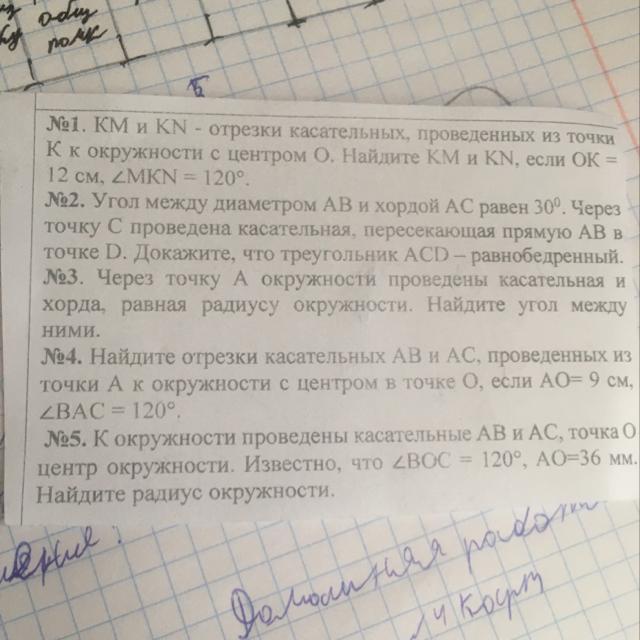 общ
№1. КМ и KN - отрезки касательных, проведенных из точки
К к окружности с центром О. Найдите КМ и KN, если ОК =
12 см, ∠MKN = 120°.
№2. Угол между диаметром АВ и хордой АС равен 30⁰. Через
точку С проведена касательная, пересекающая прямую АВ в
точке D. Докажите, что треугольник ACD – равнобедренный.
№3. Через точку А окружности проведены касательная и
хорда, равная радиусу окружности. Найдите угол между
ними.
№4. Найдите отрезки касательных АВ и АС, проведенных из
точки А к окружности с центром в точке О, если АО= 9 см,
∠BAC = 120°.
№5. К окружности проведены касательные АВ и АС, точка О
центр окружности. Известно, что ∠BOC = 120°, АО=36 мм.
Найдите радиус окружности.
Домашняя работа